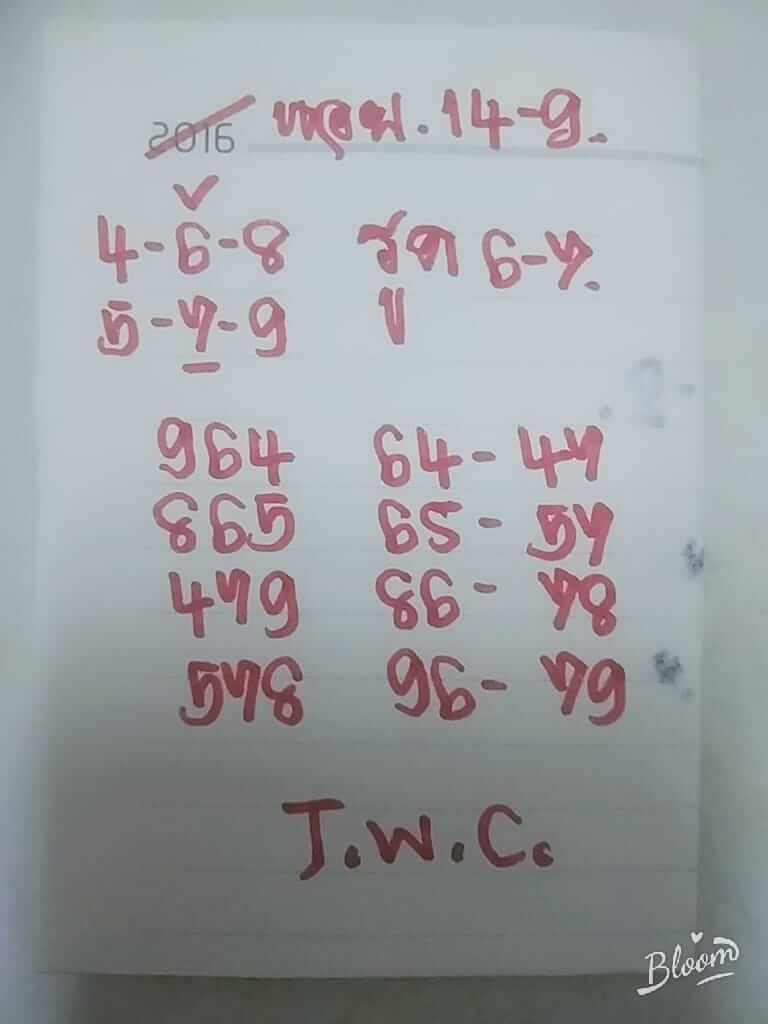 2016 หอย. 14-9.
4-6-8 รูด 6-7.
5-7-9 ปู
964 64- 47
865 65- 57
479 86- 78
578 96- 79
J.W.C.
Bloom